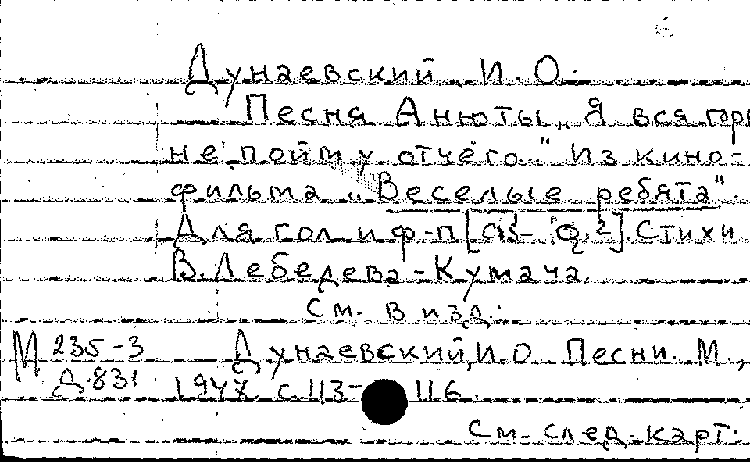 Дунаевский И. О.
Песня Анюты „Я вся горю
не пойму отчего." Из кино-
фильма „Веселые ребята".
Для гол. и ф-п Стихи
В. Лебедева-Кумача.
См. в изд:
М 235-3 Дунаевский, И.О. Песни. М.,
Д.831 1947. с.113-116.
См. след. карт.